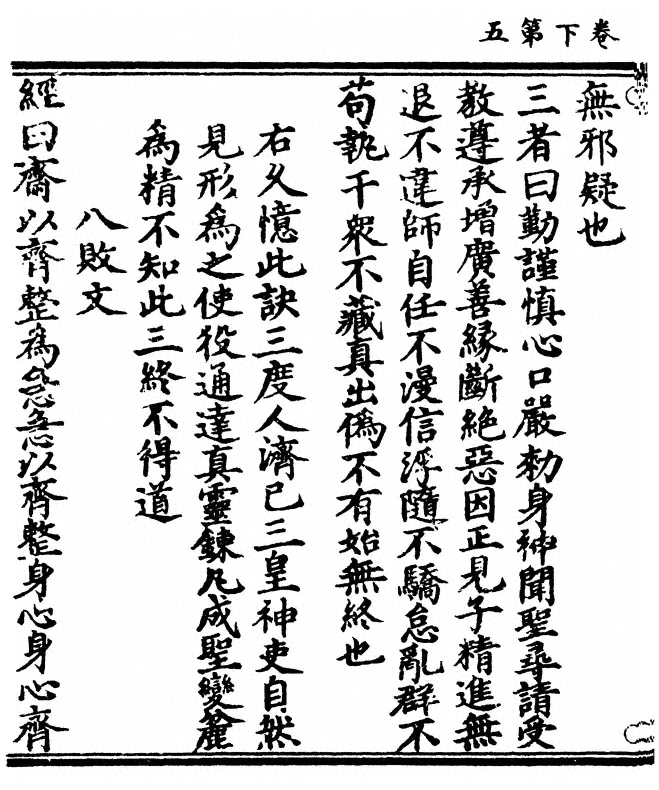 卷下第五
無邪疑也
三者曰勤謹慎心口嚴勑身神聞聖尋請受
教遵承增廣善緣斷絕惡因正見子精進無
退不違師自任不漫信浮隨不驕怠亂群不
苟執千衆不藏真出僞不有始無終也
右久憶此訣三度人濟已三皇神吏自然
見形爲之使役通達真靈鍊凡成聖變麁
爲精不知此三終不得道
八敗文
經曰齋以齊整爲急急以齊整身心身心齊